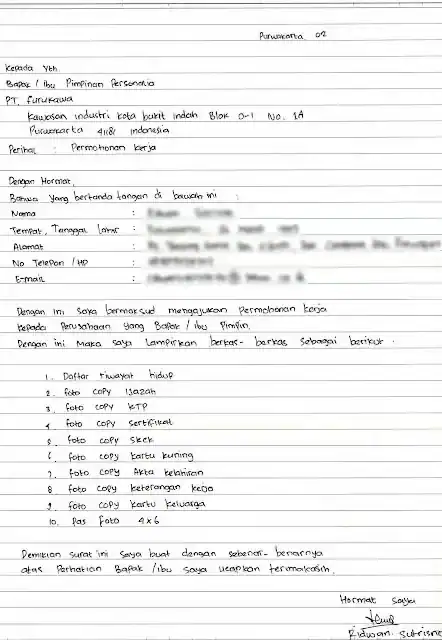 Purwakarta 02
Kepada Yth.
Bapak / Ibu Pimpinan Personalia
PT. Furukawa
Kawasan industri kota bukit indah Blok D-1 No. 1A
Purwakarta 41181 indonesia
Perihal : Permohonan kerja
Dengan Hormat,
Bahwa yang bertanda tangan di bawah ini :
Nama :
Tempat, Tanggal Lahir :
Alamat :
No Telepon / HP :
E-mail :
Dengan ini saya bermaksud mengajukan Permohonan kerja
kepada Perusahaan yang Bapak / Ibu Pimpin.
Dengan ini Maka saya Lampirkan berkas-berkas sebagai berikut.
1. Daftar riwayat hidup
2. foto copy Ijazah
3. foto copy KTP
4. foto copy sertifikat
5. foto copy skck
6. foto copy kartu kuning
7. foto copy Akta kelahiran
8. foto copy keterangan kerja
9. foto copy kartu keluarga
10. Pas foto 4x6
Demikian surat ini saya buat dengan sebenar-benarnya
atas Perhatian Bapak / ibu saya ucapkan terimakasih.
Hormat saya
Ridwan Sutrisno